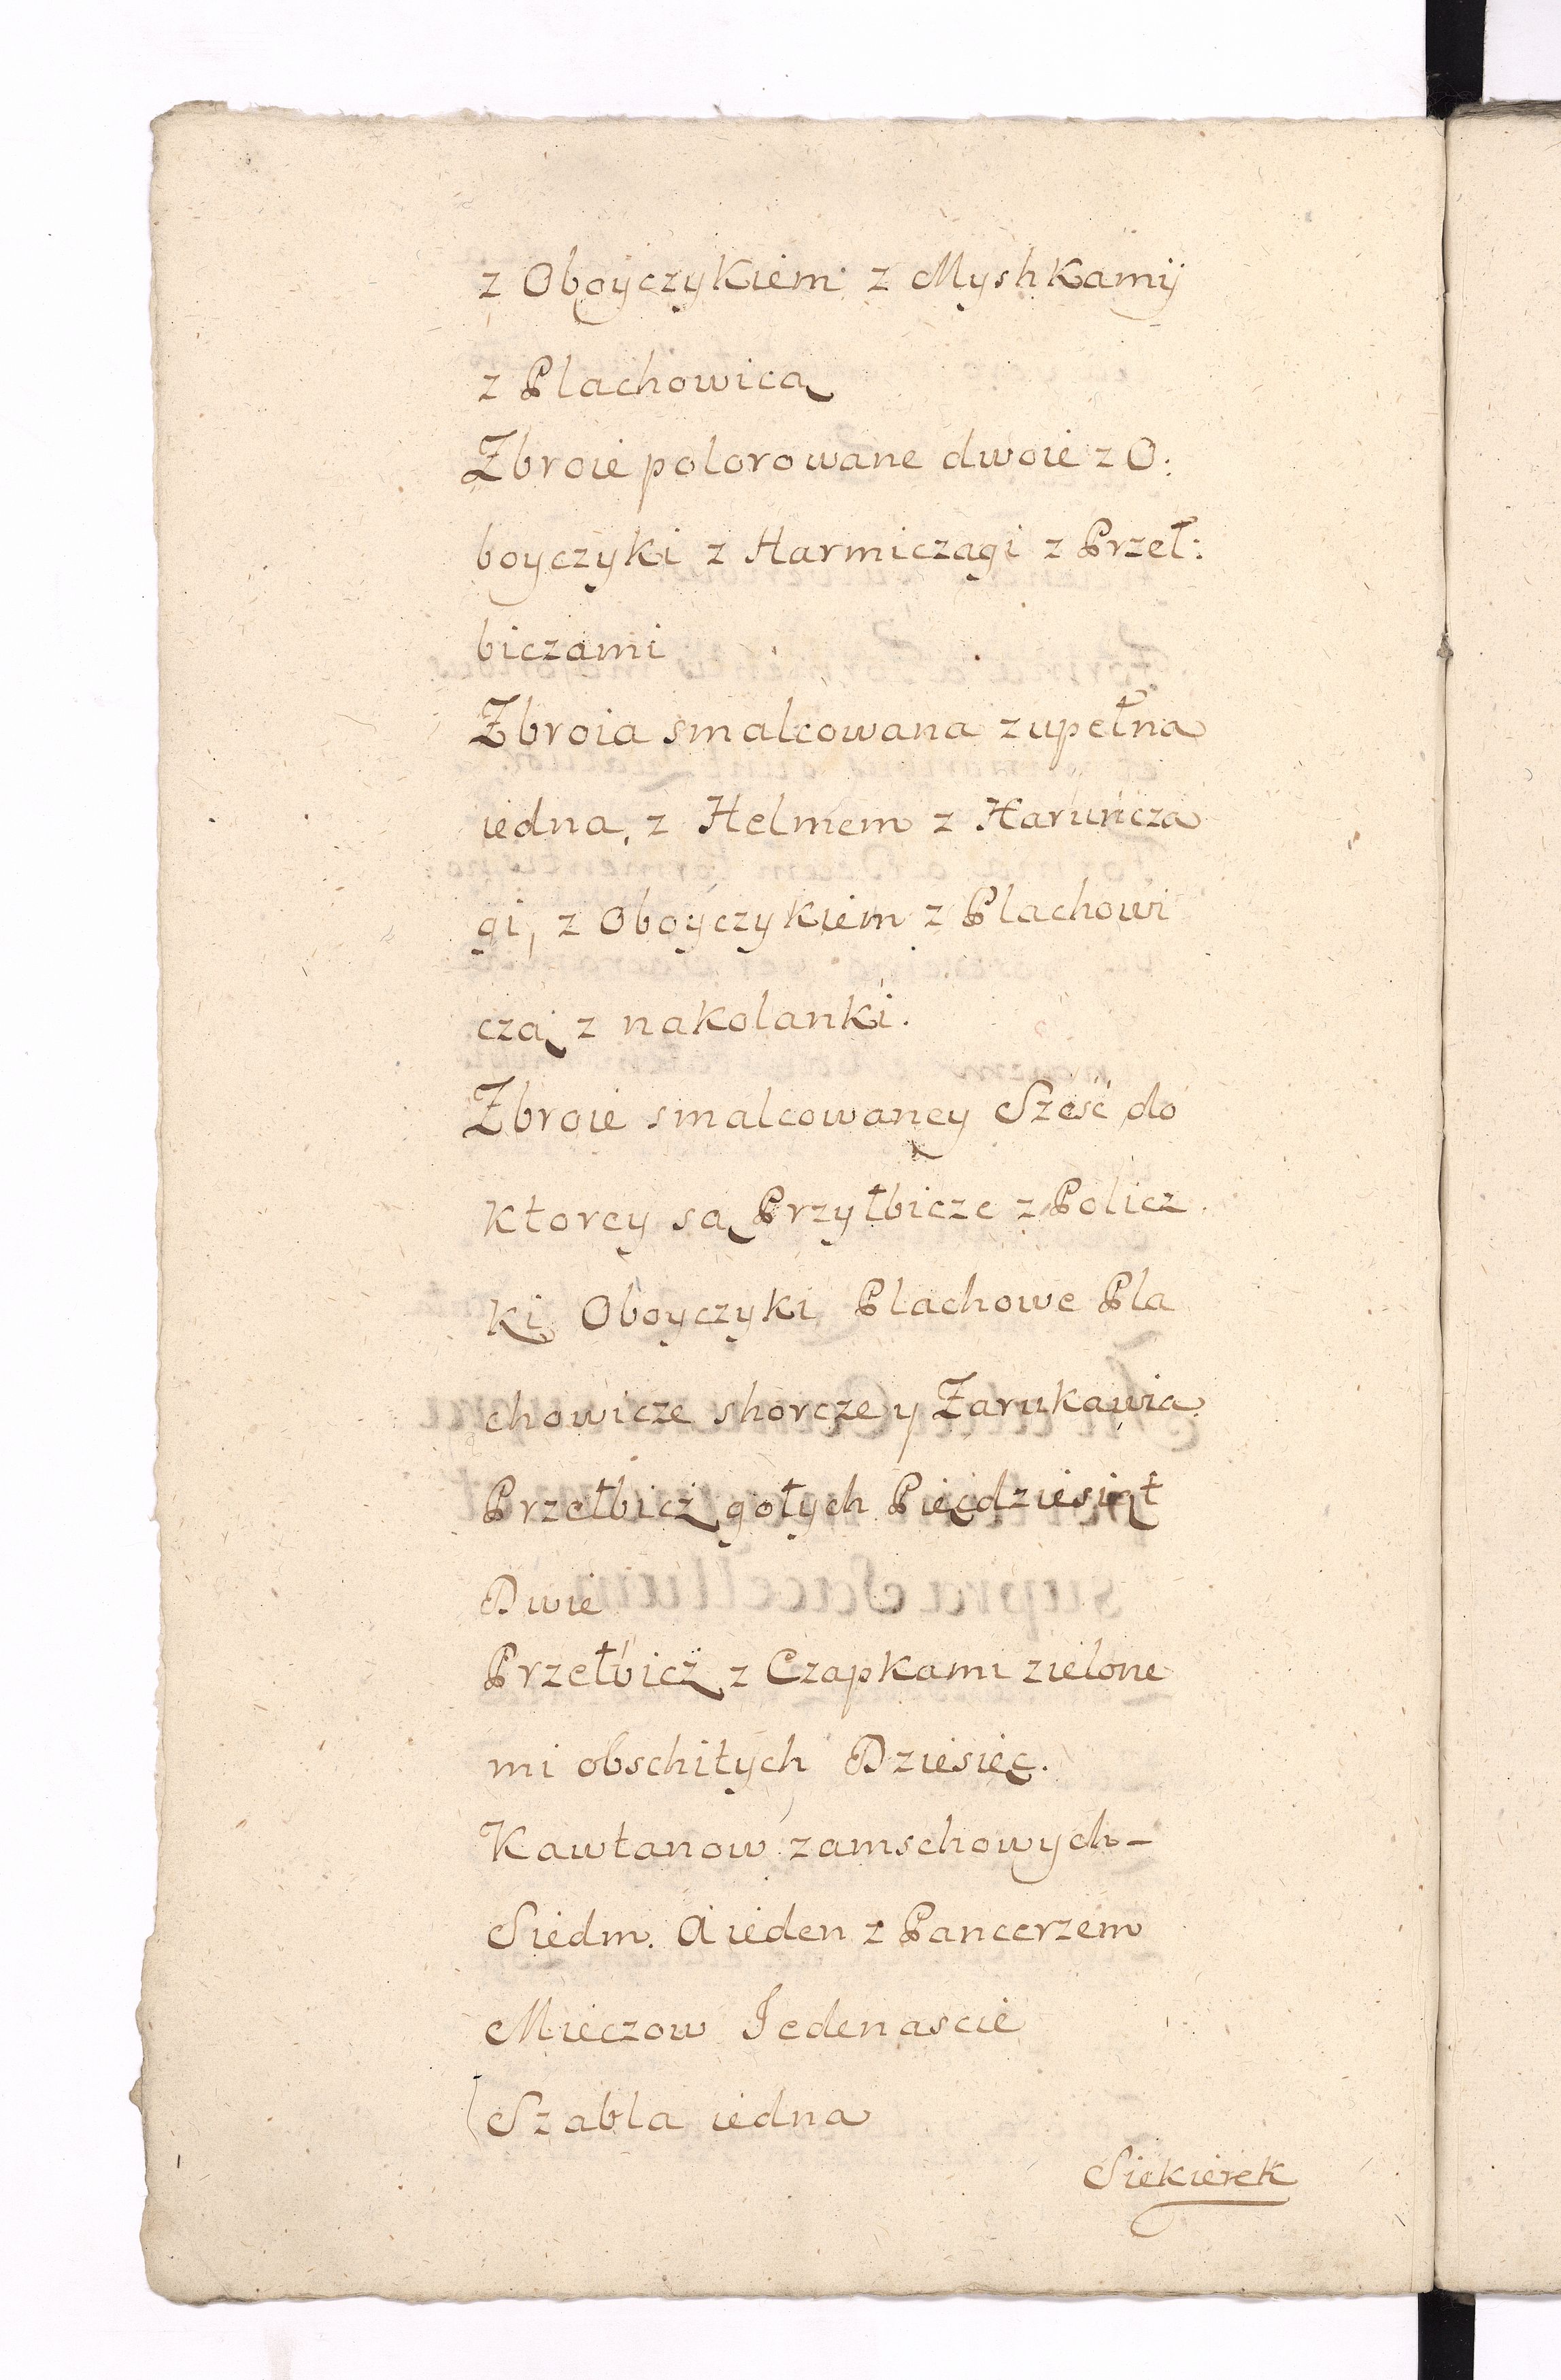 z Oboyczykiem z Myshkamy
z Plachowicą
Zbroie polorowane dwoie z O:
boyczyki z Harmiczagi z Przeł:
biczami
Zbroia smalcowana zupełna
iedna, z Helmem z Haruńcza
gi, z Oboyczykiem z Plachowi
czą z nakolanki.
Zbroie smalcowaney Sześć do
ktorey są Przyłbicze z Policz
ki Oboyczyki Plachowe Pla
chowicze shorcze y Zarukawia
Przełbicż gołych Pięcdziesiąt
Dwie
Przełbicż z Czapkami zielone
mi obschitych Dziesięc.
Kawtanow zamschowych -
Siedm. A ieden z Pancerzem
Mieczow Jedenascie
Szabla iedna
Siekierek